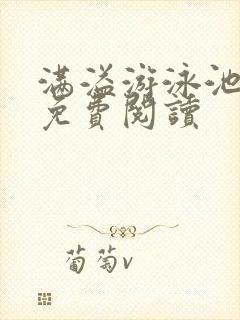 满溢游泳池
免費閱讀
葡萄v